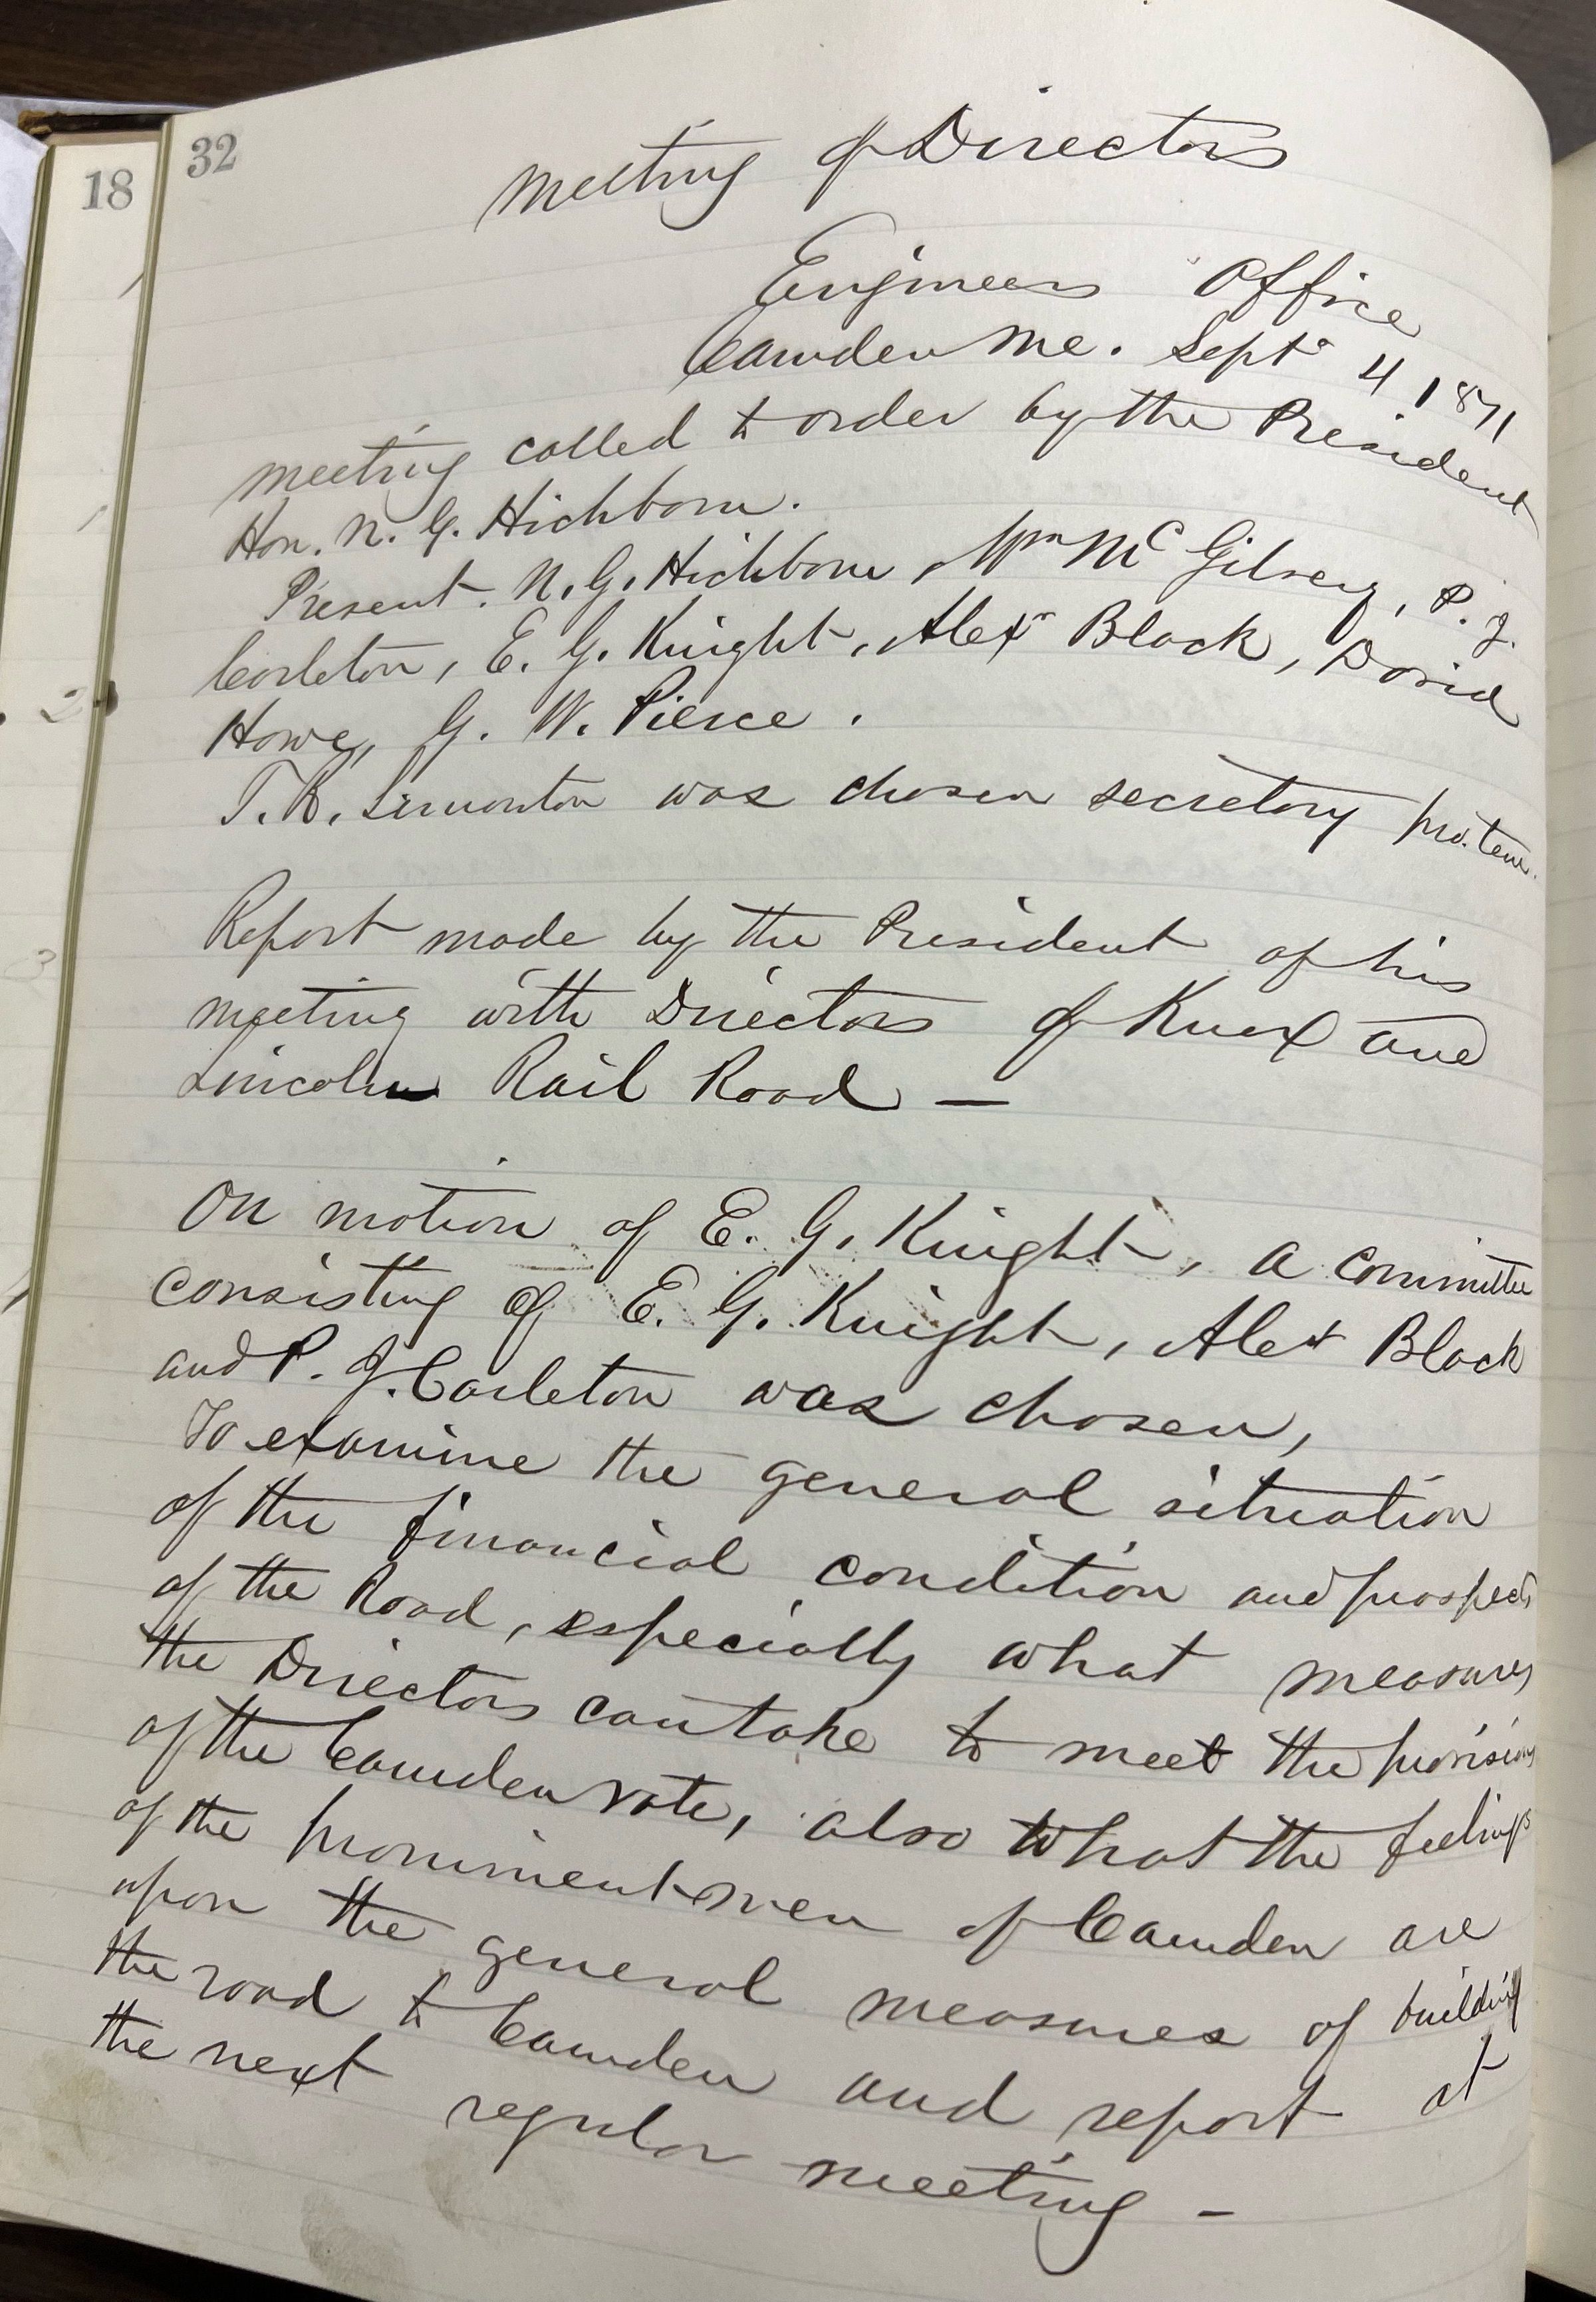 32
18
Meeting of Directors
Engineers Office
Camden Me. Sept 4 1871
Meeting called to order by the President
Hon. N. G. Hichborn.
Present. N. G. Hichborn, Wm McGilvery, P. J.
Carleton, E. G. Knight, Alexr Black, David
Howe, G. W. Pierce.
T. R. Simonton was chosen secretary pro. tem.
Report made by the President of his
meeting with Directors of Knox and
Lincoln Rail Road —
On motion of E. G. Knight, a committee
consisting of E. G. Knight, Alex Black
and P. J. Carleton was chosen,
To examine the general situation
of the financial condition and prospects
of the Road, especially what measures
the Directors can take to meet the provisions
of the Camden vote, also what the feelings
of the prominent men of Camden are
upon the general measures of building
the road to Camden and report at
the next regular meeting –